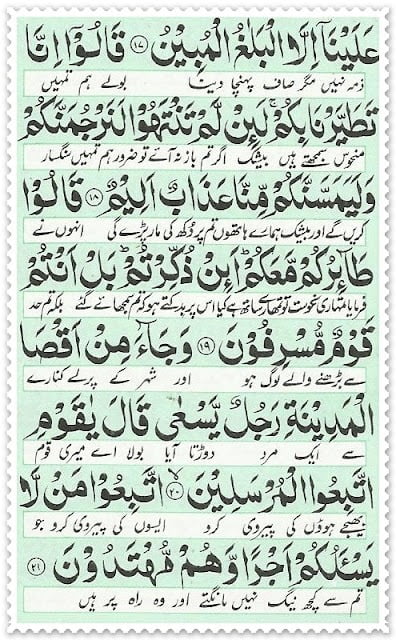 عَلَيْنَاۤ اِلَّا الْبَلٰغُ الْمُبِيْنُ ﴿۱۷﴾ قَالُوْۤا اِنَّا
ذمہ نہیں مگر صاف پہنچا دینا بولے ہم تمہیں
تَطَيَّرْنَا بِكُمْ ۚ لَئِنْ لَّمْ تَنْتَهُوْا لَنَرْجُمَنَّكُمْ
منحوس سمجھتے ہیں بیشک اگر تم باز نہ آئے تو ضرور ہم تمہیں سنگسار
وَلَيَمَسَّنَّكُمْ مِّنَّا عَذَابٌ اَلِيْمٌ ﴿۱۸﴾ قَالُوْا
کریں گے اور بیشک ہمارے ہاتھوں تم پر دکھ کی مار پڑے گی انہوں نے
طَآئِرُكُمْ مَّعَكُمْ ؕ اَئِنْ ذُكِّرْتُمْ ؕ بَلْ اَنْتُمْ
فرمایا تمہاری نحوست تو تمہارے ساتھ ہے کیا اس پر بدکتے ہو کہ تم سمجھائے گئے بلکہ تم حد
قَوْمٌ مُّسْرِفُوْنَ ﴿۱۹﴾ وَجَآءَ مِنْ اَقْصَا
سے بڑھنے والے لوگ ہو اور شہر کے پرلے کنارے
الْمَدِيْنَةِ رَجُلٌ يَّسْعٰى قَالَ يٰقَوْمِ
سے ایک مرد دوڑتا آیا بولا اے میری قوم
اتَّبِعُوا الْمُرْسَلِيْنَ ﴿۲۰﴾ اتَّبِعُوْا مَنْ لَّا
بھیجے ہوؤں کی پیروی کرو ایسوں کی پیروی کرو جو
يَسْـَٔلُكُمْ اَجْرًا وَّهُمْ مُّهْتَدُوْنَ ﴿۲۱﴾
تم سے کچھ نیگ نہیں مانگتے اور وہ راہ پر ہیں